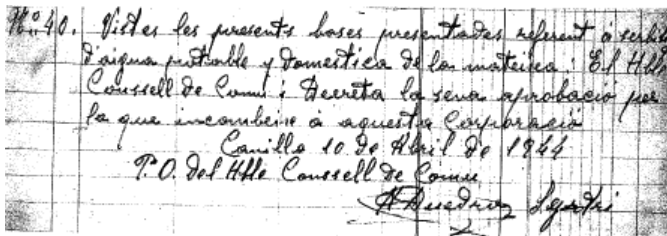 Nº 40. Vistes les presents bases presentades referent a serbici
d'aigua potrable y domestica de la mateixa: El Hble
Conssell de Comu: Decreta la seva aprobació per
la que incombeix a aquesta Corporació
Canillo 10 de Abril de 1944
P.O. del Hble Conssell de Comu